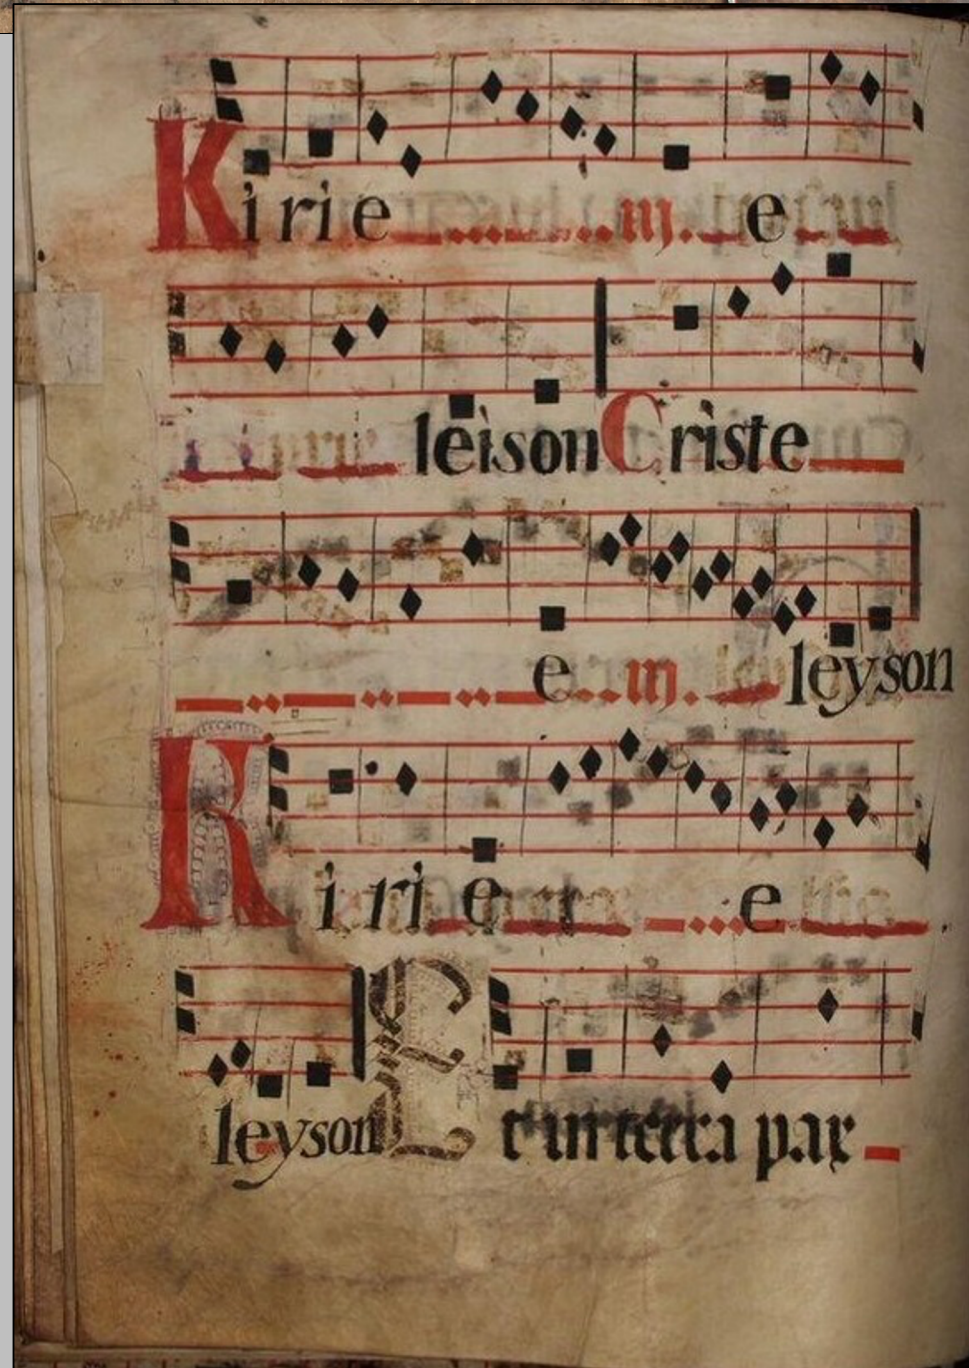 Kirie iij. e
leison Criste
e iij. leyson
Kirie e
leyson Et in terra pax